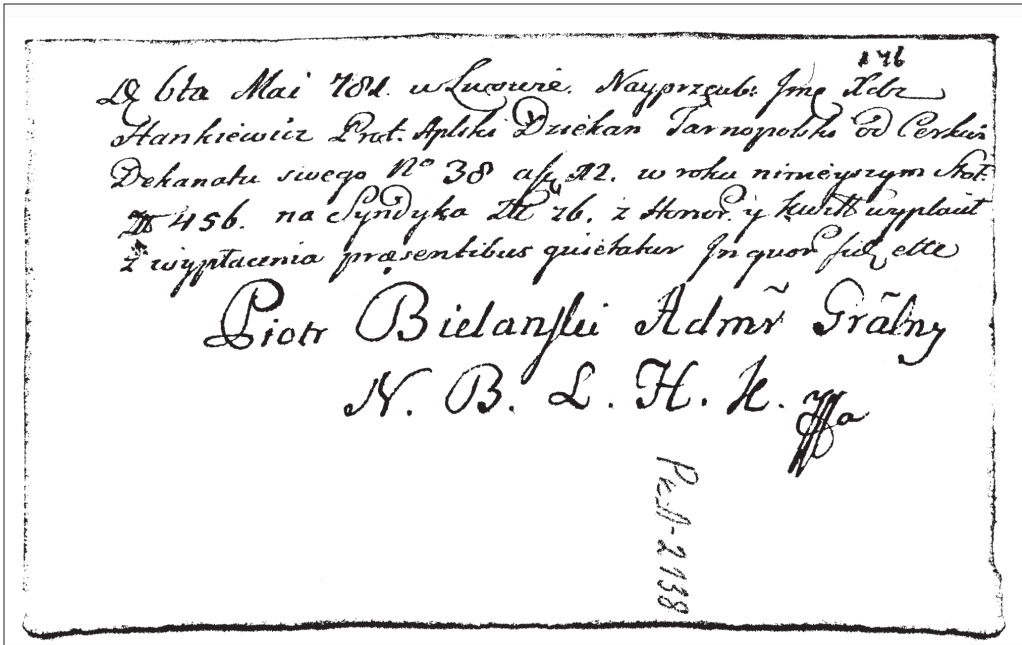 176
D. 6ta Mai 781. w Lwowie. Nayprzewb: Jmć Xdz
Stankiewicz Prot. Aplski Dziekan Tarnopolski od Cerkwi
Dekanatu swego No 38 a fl 12. w roku ninieyszym
456. na Syndyka 76. z Honor. y kwitt wypłacił
z wypłacenia præsentibus quietatur In quor
Piotr Bielanski Admr̃ Grãlny
N. B. L. H. K.
PK.A-2138